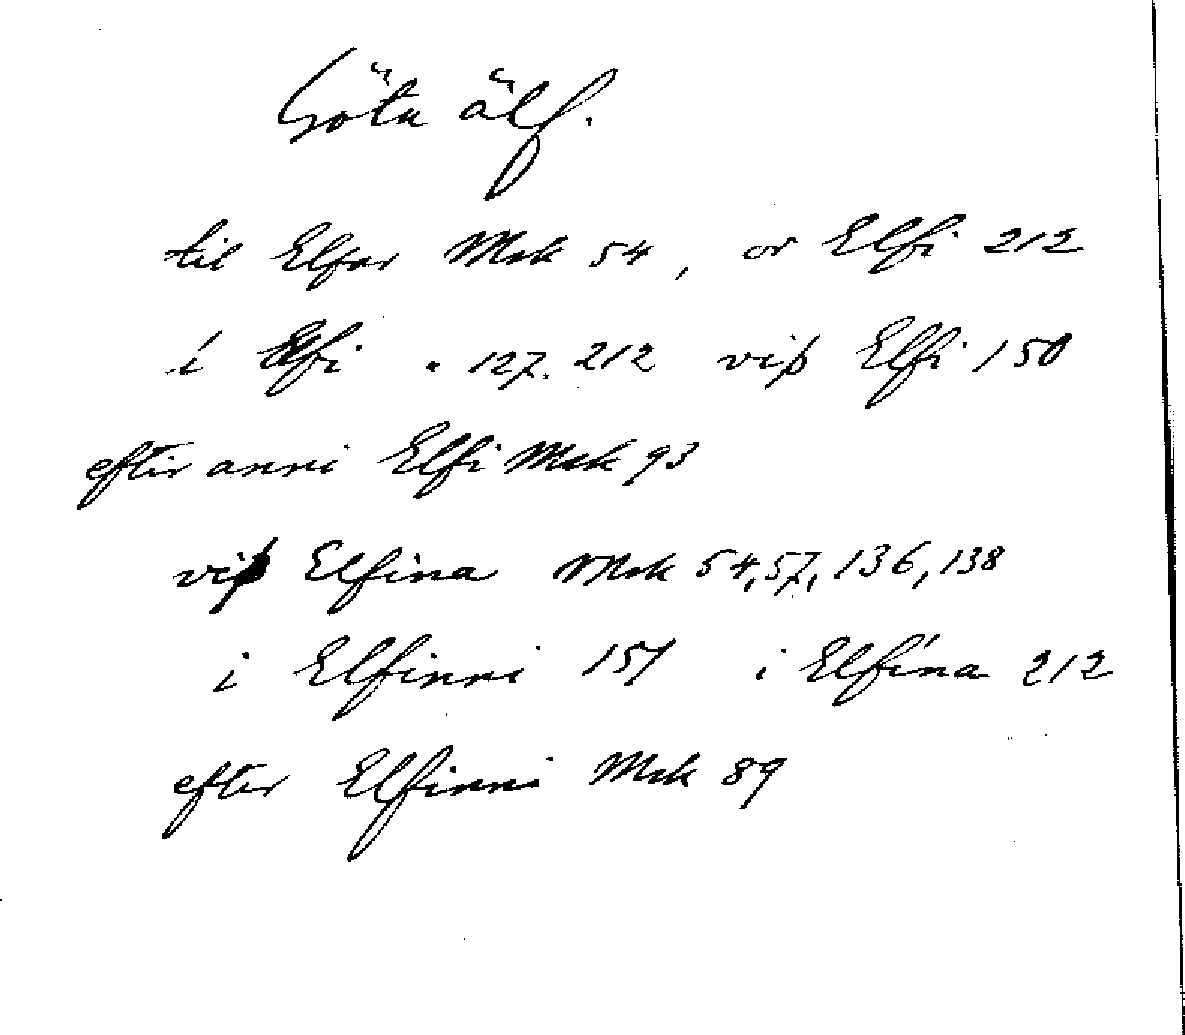 Göta älf.
til Elfar Msk 54, or Elfi 212
í Elfi " 127. 212 viþ Elfi 150
eftir anni Elfi Msk 93
viþ Elfina Msk 54, 57, 136, 138
i Elfinni 151 i Elfína 212
efter Elfinni Msk 89